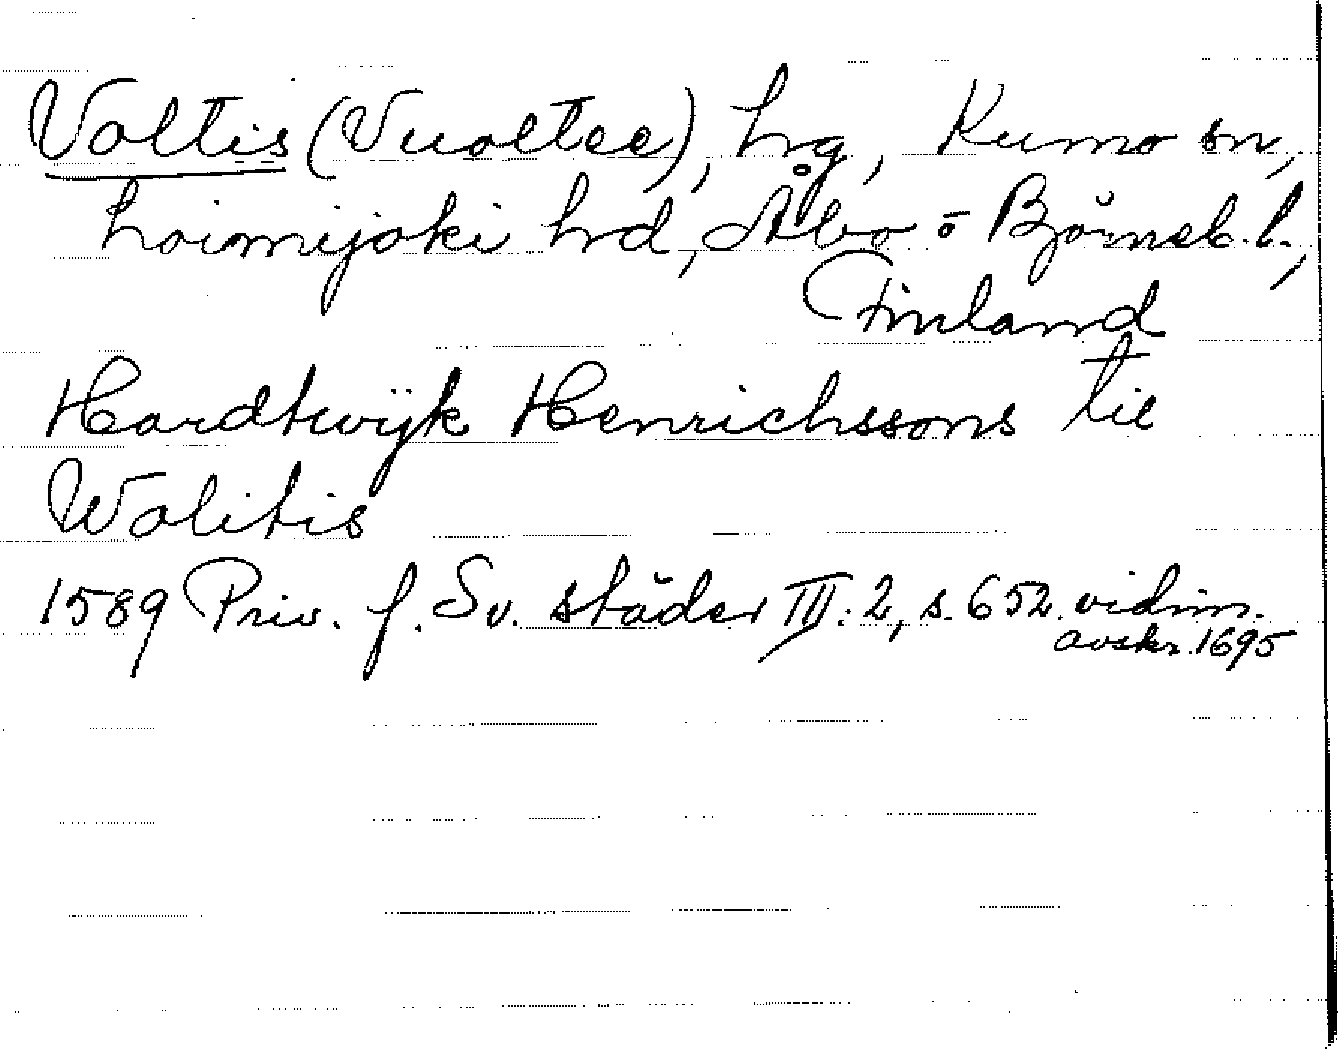 Voltis (Vuoltee), hrg, Kumo sn,
Loimijoki hrd, Åbo o Björneb. l.,
Finland
Hardtwijk Henrichssons till
Wolitis
1589 Priv. f. Sv. städer III: 2, s. 652. vidim.
avskr. 1695